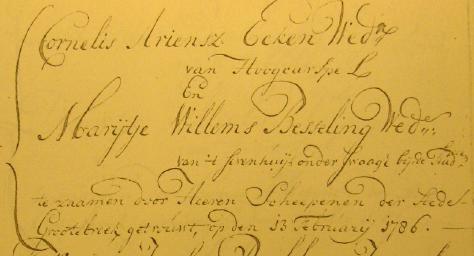 Cornelis Ariensz Ecken Wedr
van Hoogcarspel
En
Marijtje Willems Besseling Wede:
van 't sevenhuijs onder
te zaamen door Heeren Scheepenen der Stede
Grootebroek getrouwt, op den 13 February 1786. —